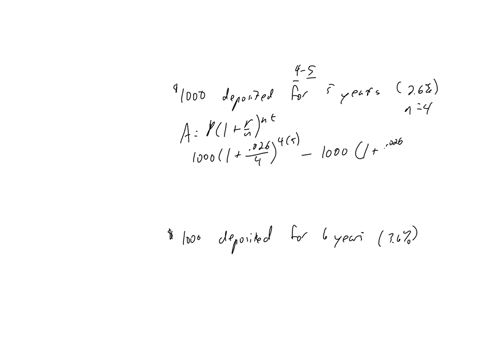 4-5
$1000 deposited for 5 years (2.6%)
n=4
A = P(1 + r/n)^nt
1000(1 + .026/4)^4(5) - 1000(1 + .026
$1000 deposited for 6 years (7.6%)